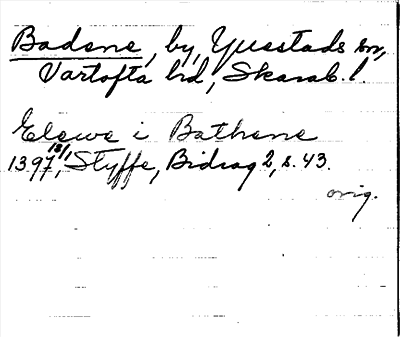 Badene, by, Yllestads sn,
Vartofta hd, Skarab. l.
Elewe i Bathene
1397 18/1, Styffe, Bidrag 2, s. 43.
orig.